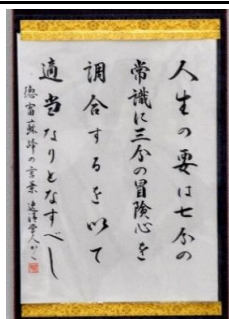 人生の要は七分の
常識に三分の冒険心を
調合するを以て
適当なりとなすべし
徳富蘇峰の言葉